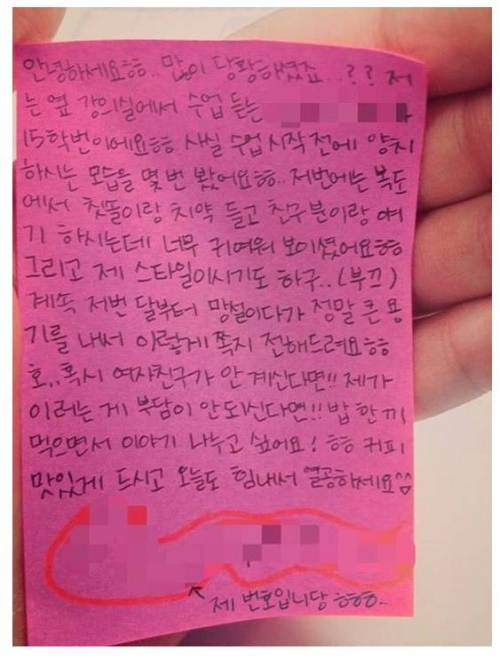 안녕하세요ㅎㅎ.. 많이 당황하셨죠...?? 저
는 옆 강의실에서 수업 듣는
15학번이에요ㅎㅎ 사실 수업 시작 전에 양치
하시는 모습을 몇 번 봤어요ㅎㅎ.. 저번에는 복도
에서 칫뚤이랑 치약 들고 친구분이랑 얘
기 하시는데 너무 귀여워 보이셨어요ㅎㅎ
그리고 제 스타일이시기도 하구..(부끄)
계속 저번 달부터 망설이다가 정말 큰 용
기를 내서 이렇게 쪽지 전해드려요ㅎㅎ
호,,혹시 여자친구가 안 계신다면!! 제가
이러는 게 부담이 안되신다면!! 밥 한 끼
먹으면서 이야기 나누고 싶어요! ㅎㅎ 커피
맛있게 드시고 오늘도 힘내서 열공하세요^^
제 번호입니당 ㅎㅎㅎ..